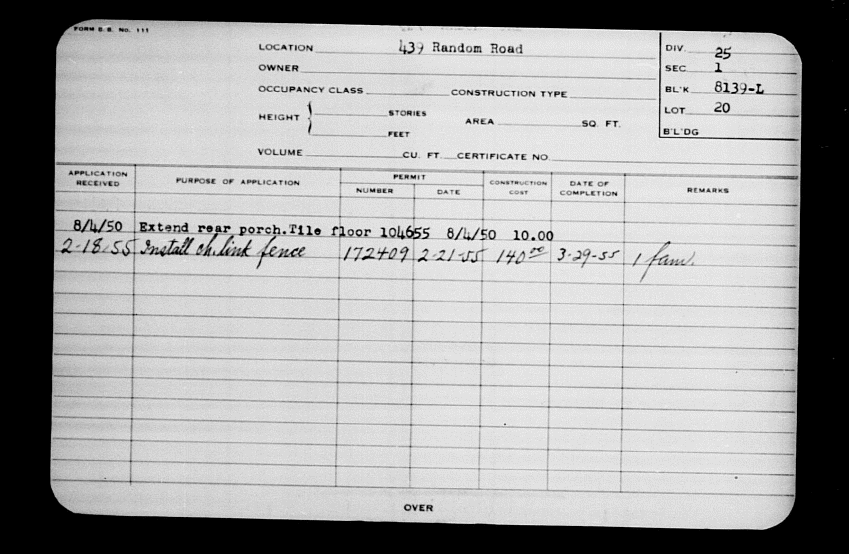 FORM B. B. NO. 111
LOCATION 439 Random Road
OWNER
OCCUPANCY CLASS CONSTRUCTION TYPE
HEIGHT { STORIES
FEET
AREA SQ. FT.
VOLUME CU. FT. CERTIFICATE NO.
DIV. 25
SEC 1
BL'K 8139-L
LOT 20
B'L'DG
APPLICATION RECEIVED PURPOSE OF APPLICATION PERMIT NUMBER DATE CONSTRUCTION COST DATE OF COMPLETION REMARKS
8/4/50 Extend rear porch.Tile floor 104655 8/4/50 10.00
2-18-55 Install ch. link fence 172409 2-21-55 140 00 3-29-55 1 fam.
OVER